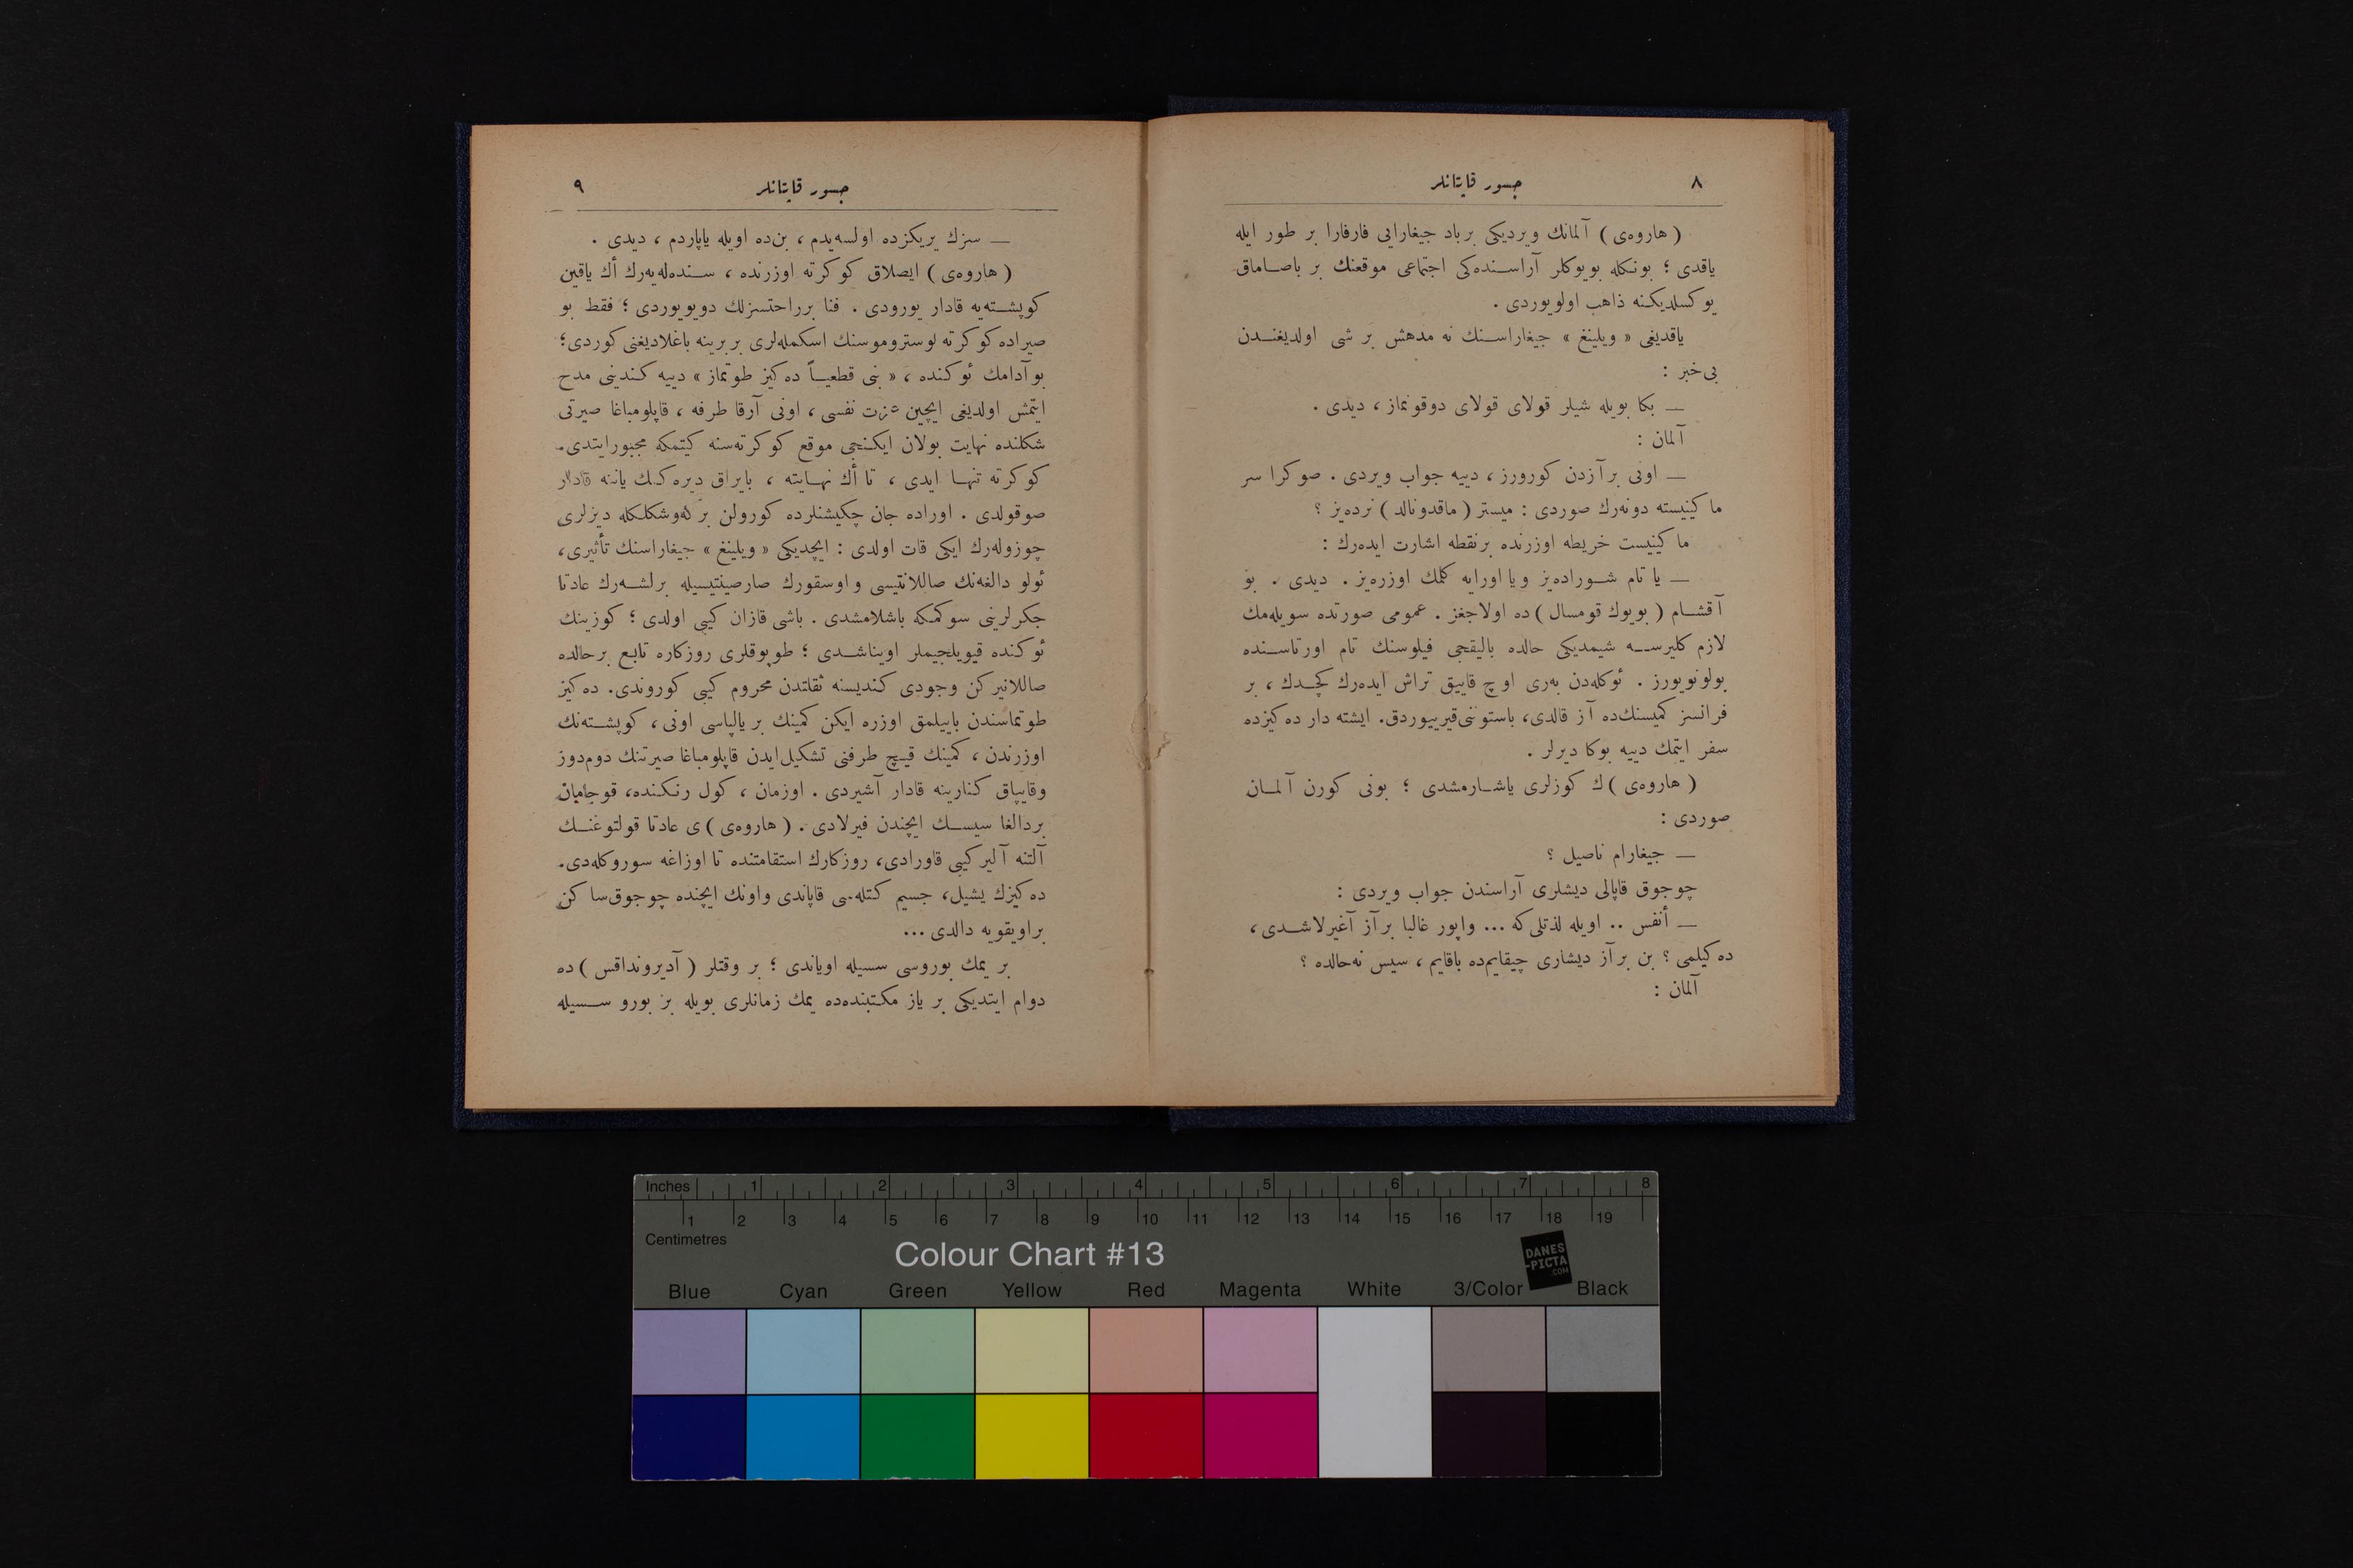 جسور قاپتانلر
٨
( هاروه‌ی ) آلمانك ويرديكی برباد جيغارایی فارفارا بر طور ايله
ياقدی ؛ بونكله بويوكلر آراسنده‌كی اجتماعی موقعنك بر باصاماق
يوكسلديكنه ذاهب اولويوردی .
ياقديغی « ويلينغ » جيغاراسنك نه مدهش بر شی اولديغندن
بی‌خبر :
— بكا بويله شيلر قولای قولای دوقونماز ، ديدی .
آلمان :
— اونی بر آزدن كورورز ، دييه جواب ويردی . صوكرا سر
ماكينيسته دونه‌رك صوردی : ميستر ( ماقدونالد ) نرده‌يز ؟
ماكينيست خريطه اوزرنده برنقطه اشارت ايده‌رك :
— يا تام شوراده‌يز ويا اورايه كلمك اوزره‌يز . ديدی . بو
آقشام ( بويوك قومسال ) ده اولاجغز . عمومی صورتده سويله‌مك
لازم كليرسه شيمديكی حالده باليقجی فيلوسنك تام اورتاسنده
بولونويورز . ئوكله‌دن به‌ری اوچ قاييق تراش ايده‌رك كچدك ، بر
فرانسز كميسنك‌ده آز قالدی، باستوننی قيرييوردق. ايشته دار ده‌كيزده
سفر ايتمك دييه بوكا ديرلر .
( هاروه‌ی ) ك كوزلری ياشارمشدی ؛ بونی كورن آلمان
صوردی :
— جيغارام ناصيل ؟
چوجوق قاپالی ديشلری آراسندن جواب ويردی :
— أنفس .. اويله لذتلی كه ... واپور غالبا بر آز آغيرلاشدی ،
ده‌كيلمی ؟ بن بر آز ديشاری چيقايم‌ده باقايم ، سيس نه‌حالده ؟
آلمان :
جسور قاپتانلر
٩
— سزك يريكزده اولسه‌يدم ، بن‌ده اويله ياپاردم ، ديدی .
( هاروه‌ی ) ايصلاق كوكرته اوزرنده ، سنده‌له‌يه‌رك أك ياقين
كوپشته‌يه قادار يورودی . فنا برراحتسزلك دويويوردی ؛ فقط بو
صيراده كوكرته لوستروموسنك اسكمله‌لری بربرينه باغلاديغنی كوردی؛
بوآدامك ئوكنده ، « بنی قطعياً ده‌كيز طوتماز » دييه كندينی مدح
ايتمش اولديغی ايچين عزت نفسی ، اونی آرقا طرفه ، قاپلومباغا صيرتی
شكلنده نهايت بولان ايكنجی موقع كوكرته‌سنه كيتمكه مجبورايتدی.
كوكرته تنها ايدی ، تا أك نهايته ، بايراق ديره‌كنك ياننه قادار
صوقولدی . اوراده جان چكيشنلرده كورولن بر كه‌وشكلكله ديزلری
چوزوله‌رك ايكی قات اولدی : ايچديكی « ويلينغ » جيغاراسنك تأثيری،
ئولو دالغه‌نك صاللانتيسی و اوسقورك صارصينتيسيله برلشه‌رك عادتا
جكرلرينی سوكمكه باشلامشدی . باشی قازان كيبی اولدی ؛ كوزينك
ئوكنده قيويلجيملر اويناشدی ؛ طوپوقلری روزكاره تابع برحالده
صاللانيركن وجودی كنديسنه ثقلتدن محروم كيبی كوروندی. ده‌كيز
طوتماسندن باييلمق اوزره ايكن كمينك بر يالپاسی اونی ، كوپشته‌نك
اوزرندن ، كمينك قيچ طرفنی تشكيل‌ايدن قاپلومباغا صيرتنك دوم‌دوز
وقايپاق كنارينه قادار آشيردی . اوزمان ، كول رنكنده، قوجامان
بردالغا سيسك ايچندن فيرلادی . ( هاروه‌ی ) ی عادتا قولتوغنك
آلتنه آليركيبی قاورادی، روزكارك استقامتنده تا اوزاغه سوروكله‌دی.
ده‌كيزك يشيل، جسيم كتله‌سی قاپاندی واونك ايچنده چوجوق ساكن
براويقويه دالدی ...
بر يمك بوروسی سسيله اوياندی ؛ بر وقتلر ( آديرونداقس ) ده
دوام ايتديكی بر ياز مكتبنده‌ده يمك زمانلری بويله بر بورو سسيله
Inches 1 2 3 4 5 6 7 8
1 2 3 4 5 6 7 8 9 10 11 12 13 14 15 16 17 18 19
Centimetres
Colour Chart #13
DANES
-PICTA
.COM
Blue Cyan Green Yellow Red Magenta White 3/Color Black